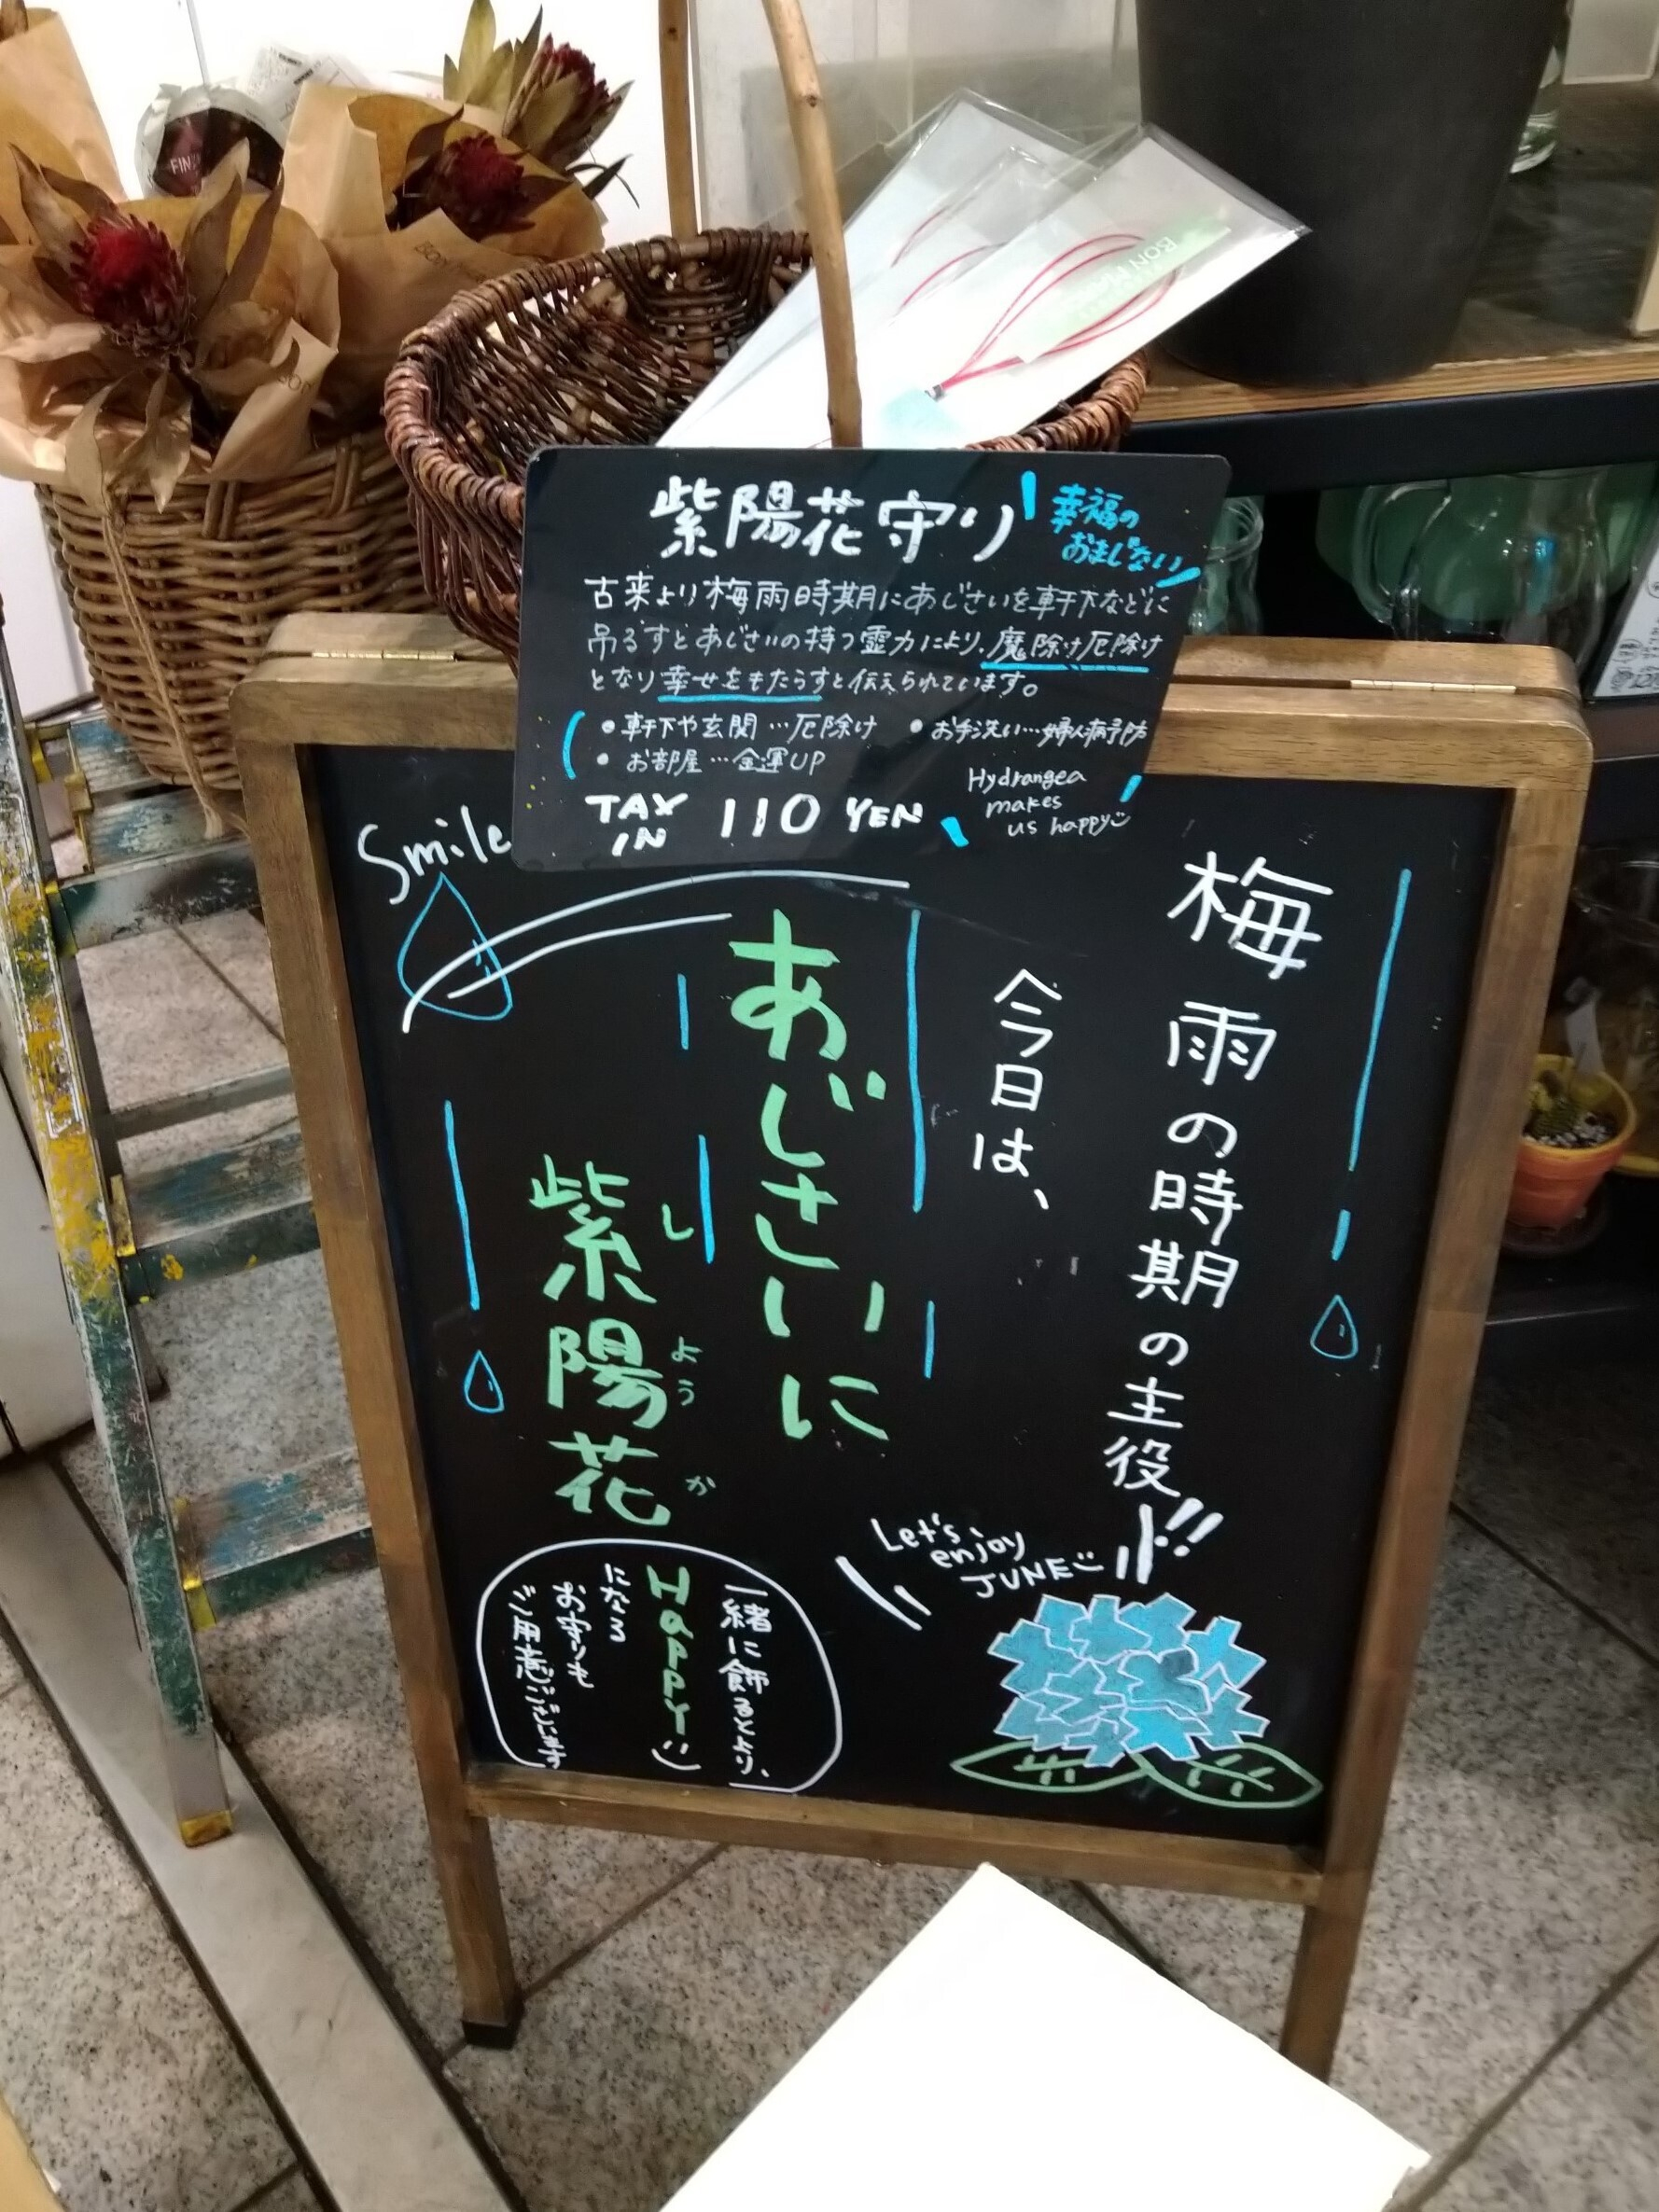 紫陽花守り
幸福の
おまじない
古来より梅雨時期にあじさいを軒下などに
吊るすとあじさいの持つ霊力により、魔除け厄除け
となり幸せをもたらすと伝えられています。
・軒下や玄関…厄除け
・お手洗い…婦人病予防
・お部屋…金運UP
TAX
IN
110 YEN
Hydrangea
makes
us happy
Smile
梅雨の時期の主役!!
今日は、
あじさいに
紫陽花
しようか
Let's
enjoy
JUNE
一緒に飾るとより、
Happy
になる
お守りも
ご用意ございます
BON
FIN